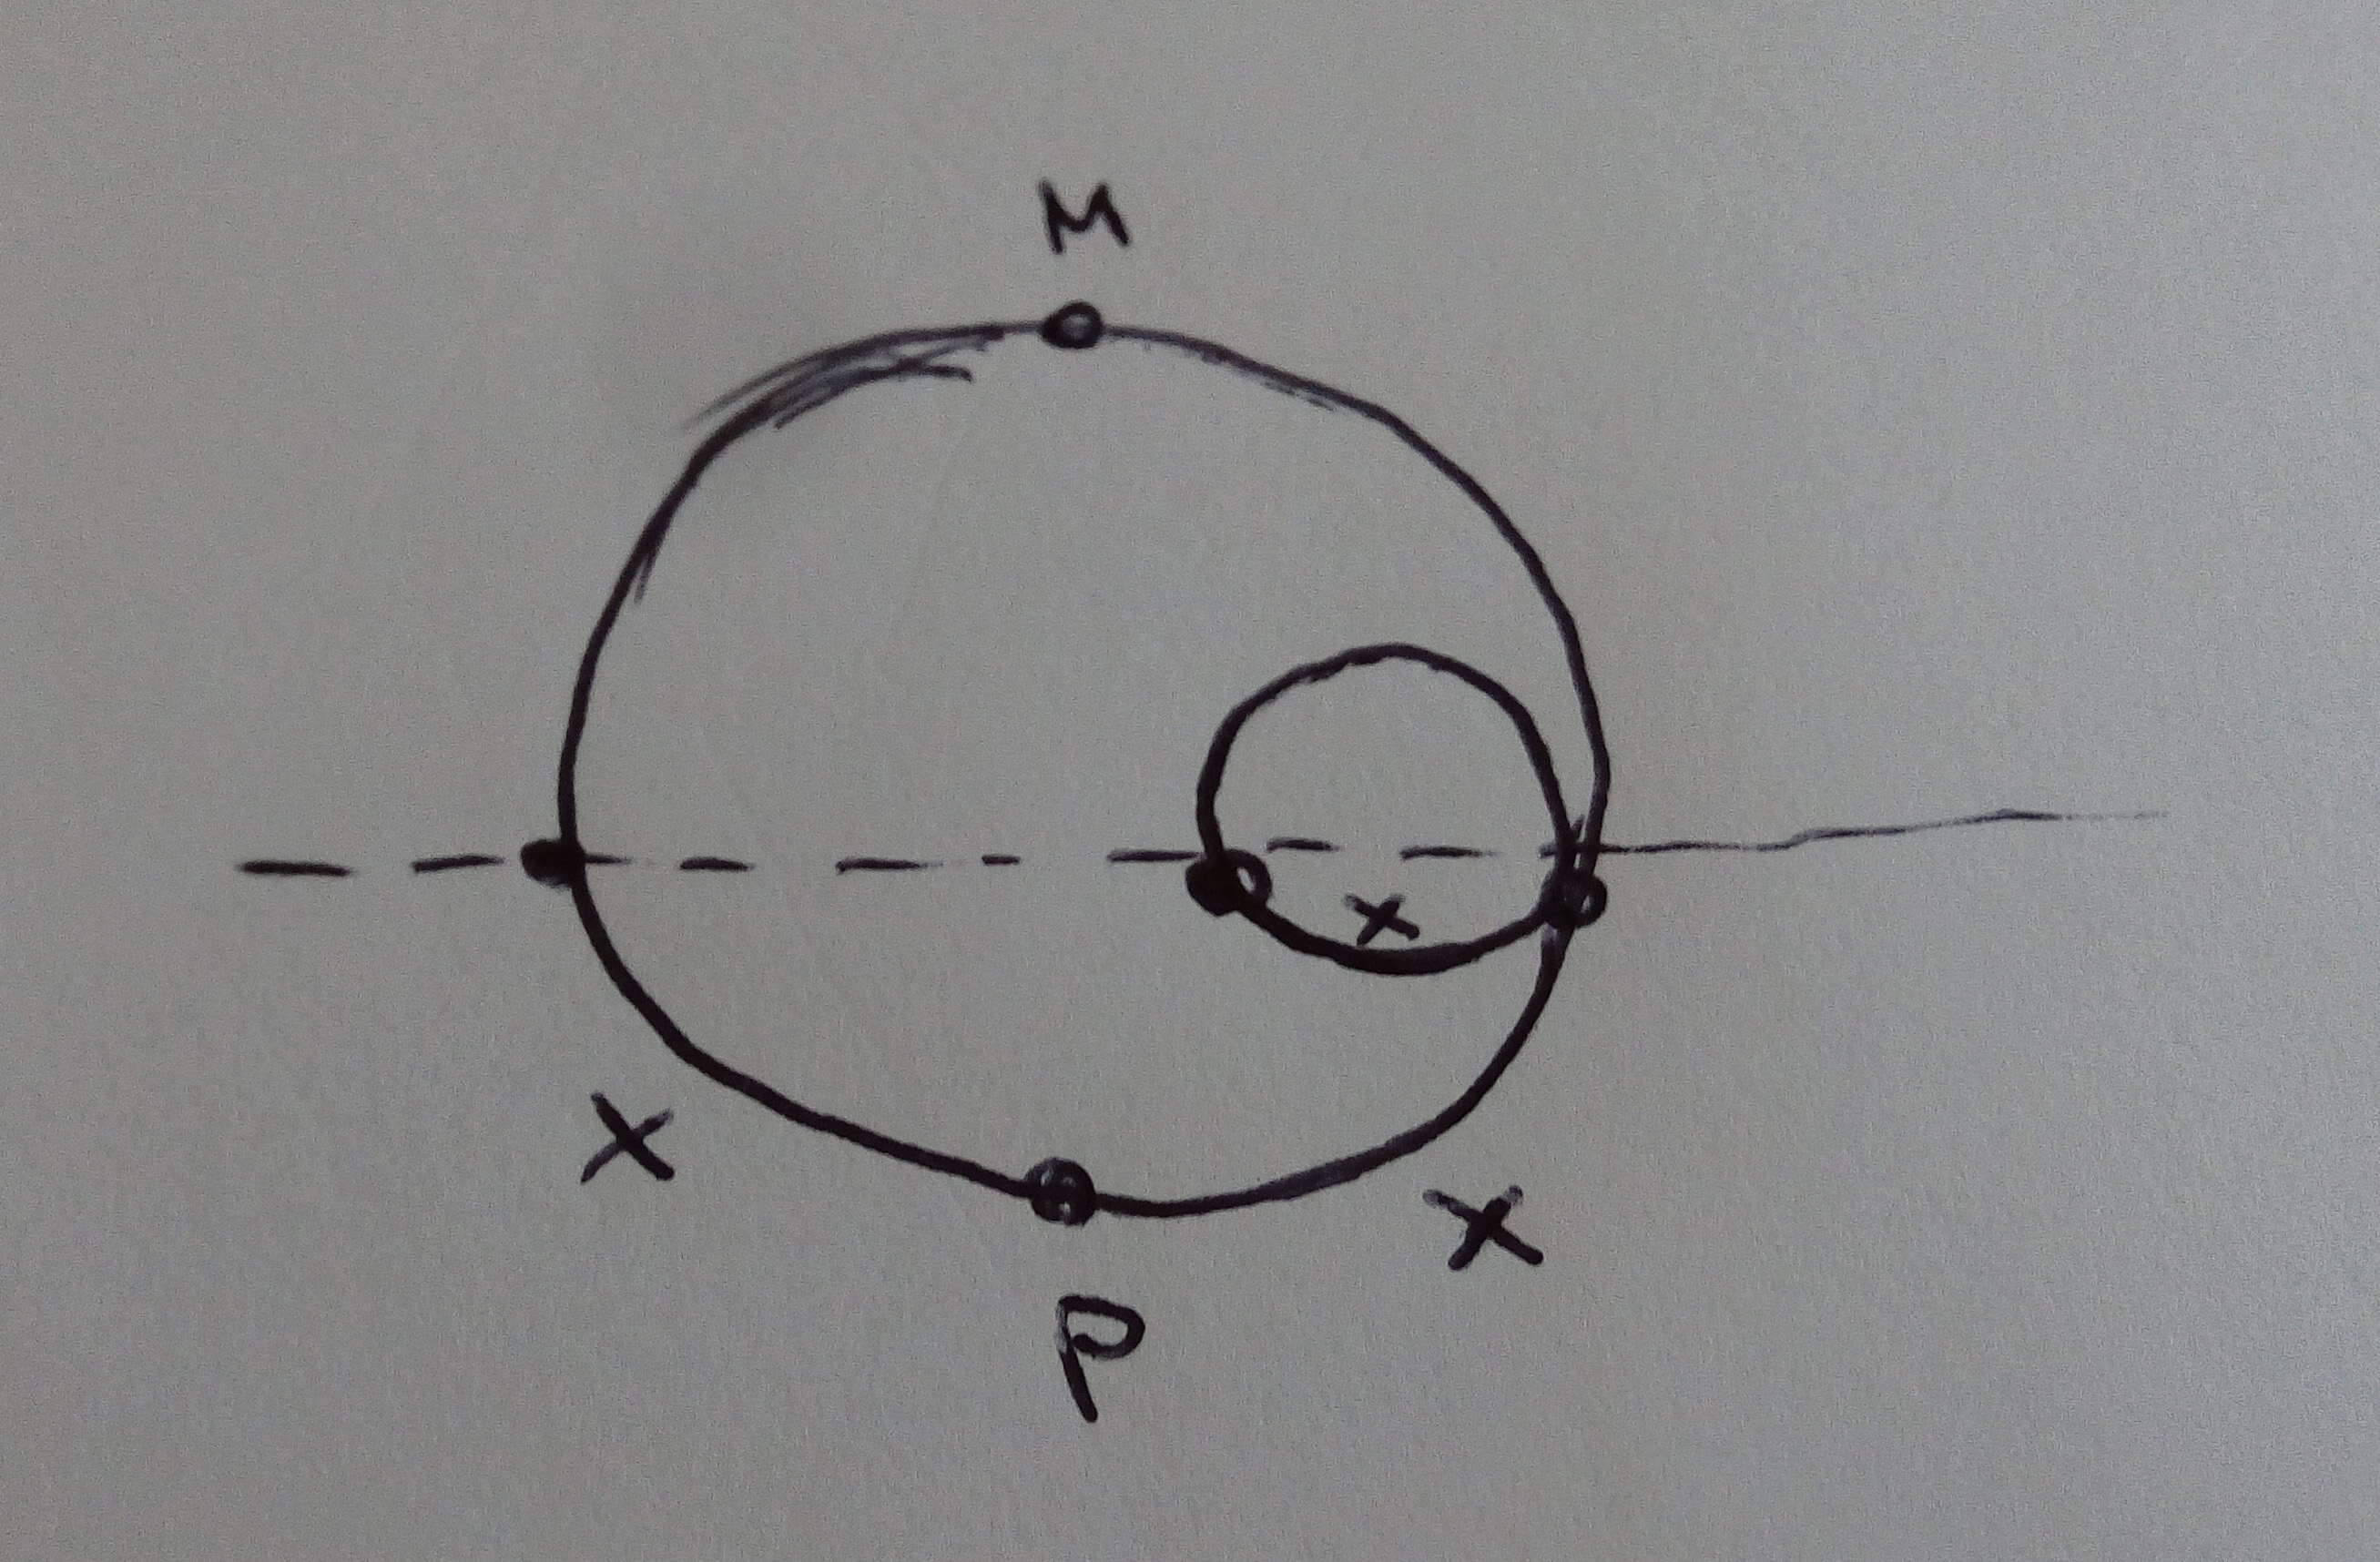 M
x
X
X
P